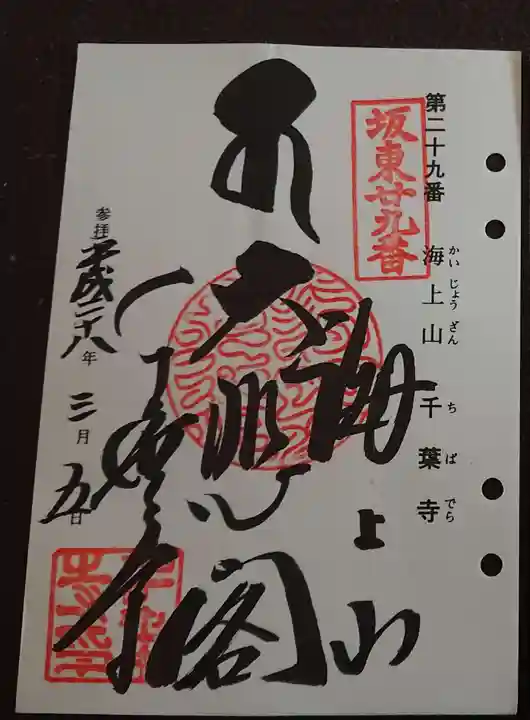 第二十九番 海上山 千葉寺
かいじょうざん ちばでら
坂東廿九番
海上山
大悲閣
千葉寺
参拝 平成二十八年 三月 五日